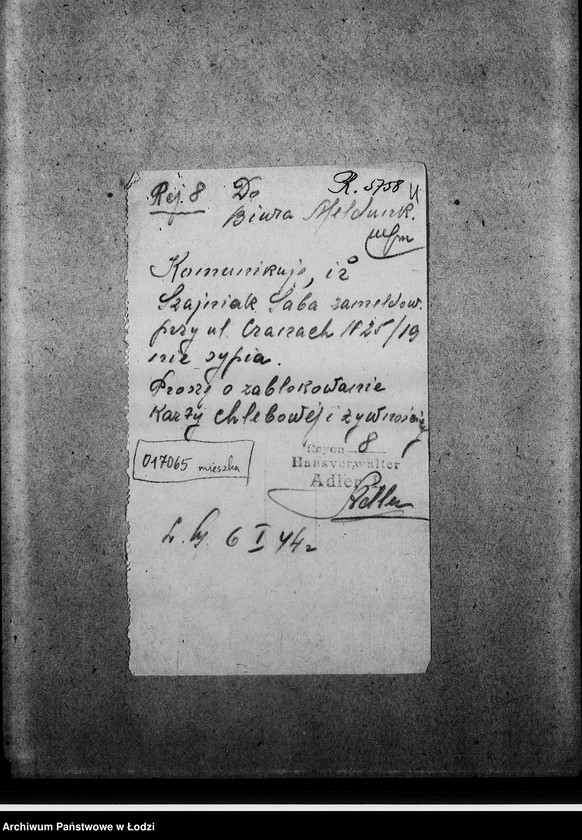 Rej. 8 Do R. 5758
Biura Meldunk.
Komunikuję, iż
Szajniak Saba zameldow.
przy ul. Cranach N 25/19
nie sypia.
Proszę o zablokowanie
Karty chlebowej i żywnościowej
017065 mieszka
Rayon 8
Hausverwalter
Adler
Adler
L. 6 I 44 r
Archiwum Państwowe w Łodzi